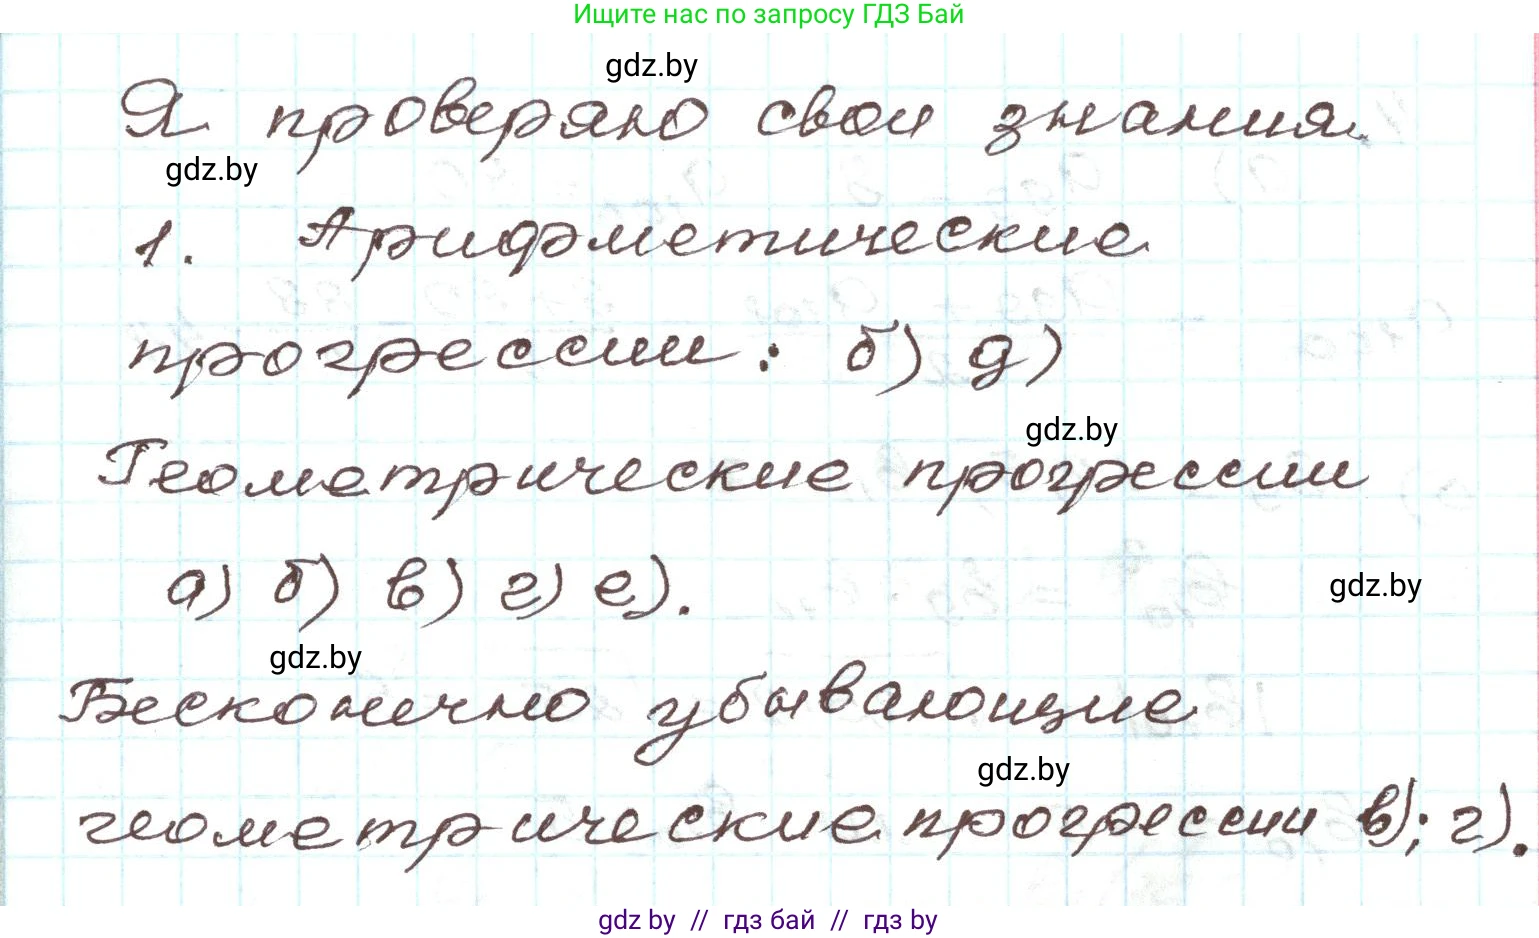 Ищите нас по запросу ГДЗ Бай
gdz.by
Я проверяю свои знания.
gdz.by
1. Арифметические
прогрессии: б) д)
gdz.by
Геометрические прогрессии
а) б) в) г) е).
gdz.by
gdz.by
Бесконечно убывающие
gdz.by
геометрические прогрессии в); г).
gdz by // гдз бай // гдз by